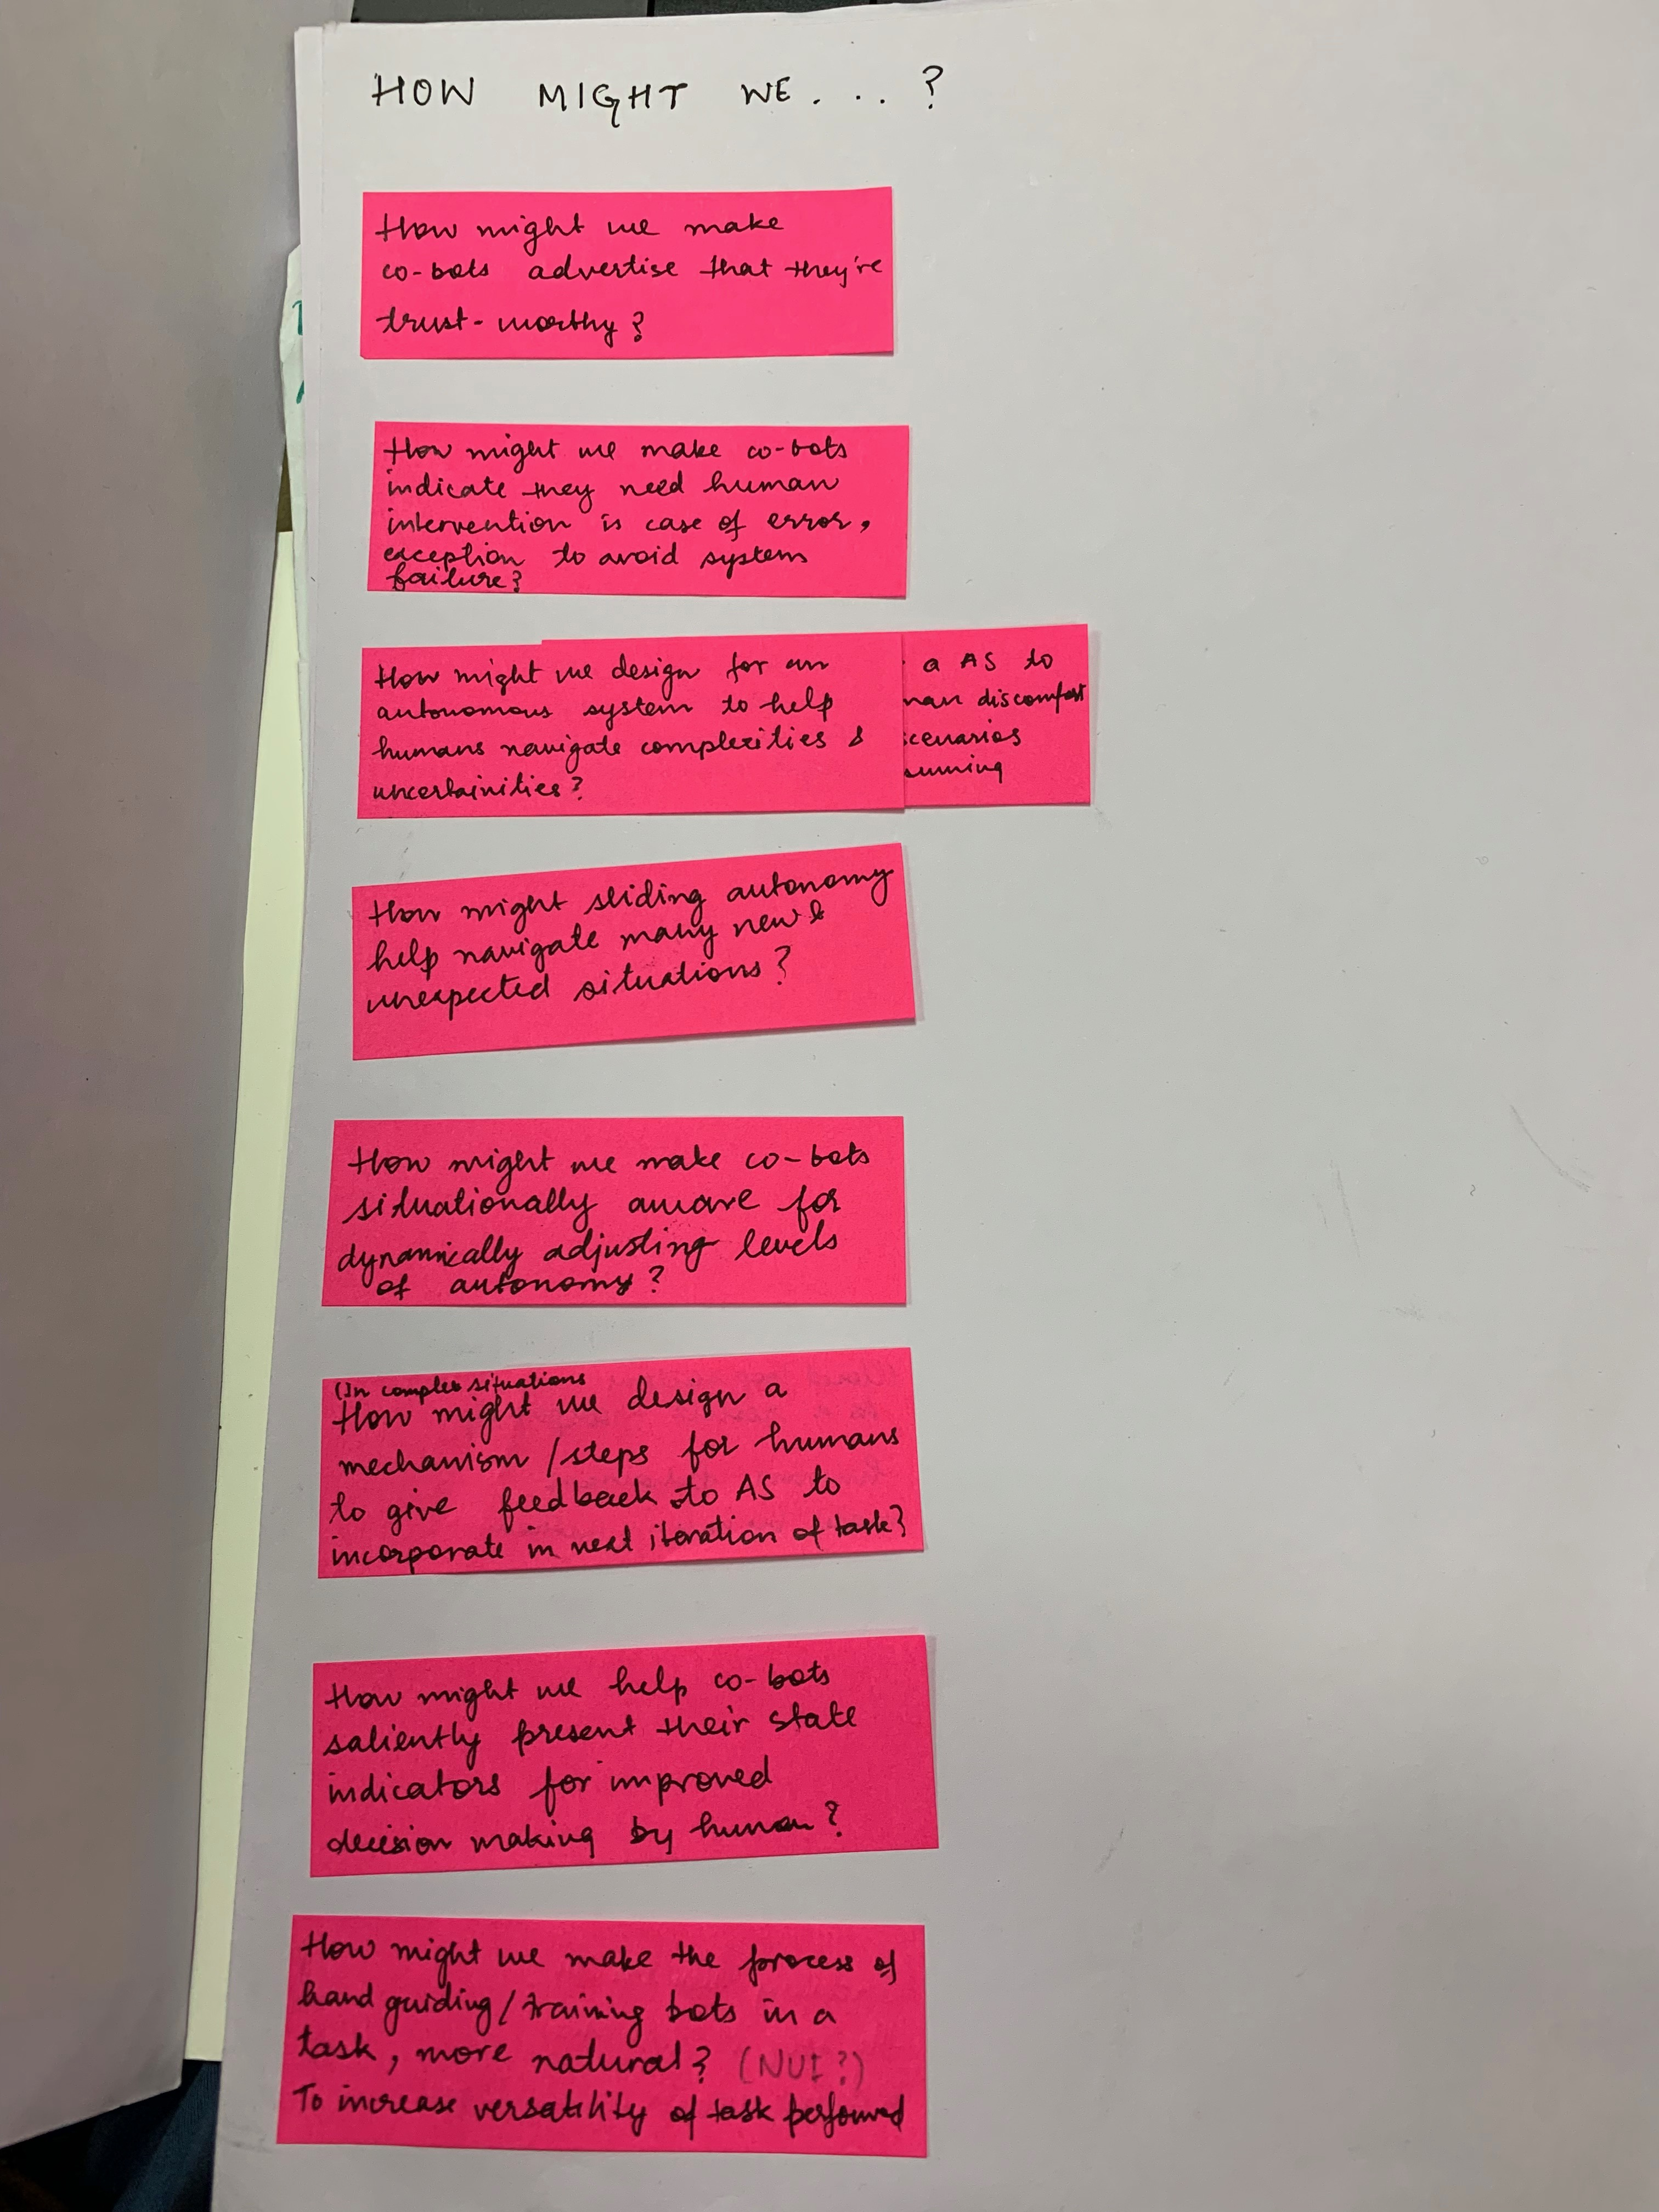 HOW MIGHT WE. . . ?
How might we make
co-bots advertise that they're
trust-worthy?
How might we make co-bots
indicate they need human
intervention is case of error,
exception to avoid system
failure?
How might we design for an
autonomous system to help
humans navigate complexities &
uncertainities?
a AS to
discomfort
How might sliding autonomy
help navigate many new &
unexpected situations?
How might we make co-bots
situationally aware for
dynamically adjusting levels
of autonomy?
(In complex situations
How might we design a
mechanism/steps for humans
to give feedback to AS to
incorporate in next iteration of task?
How might we help co-bots
saliently present their state
indicators for improved
decision making by human?
How might we make the process of
hand guiding/training bots in a
task, more natural? (NUI?)
To increase versatility of task performed